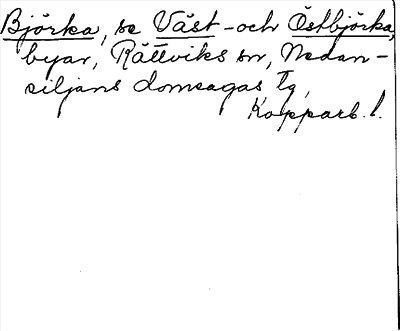 Björka, se Väst- och Östbjörka,
byar, Rättviks sn, Nedan-
siljans domsagas tg,
Kopparb. l.